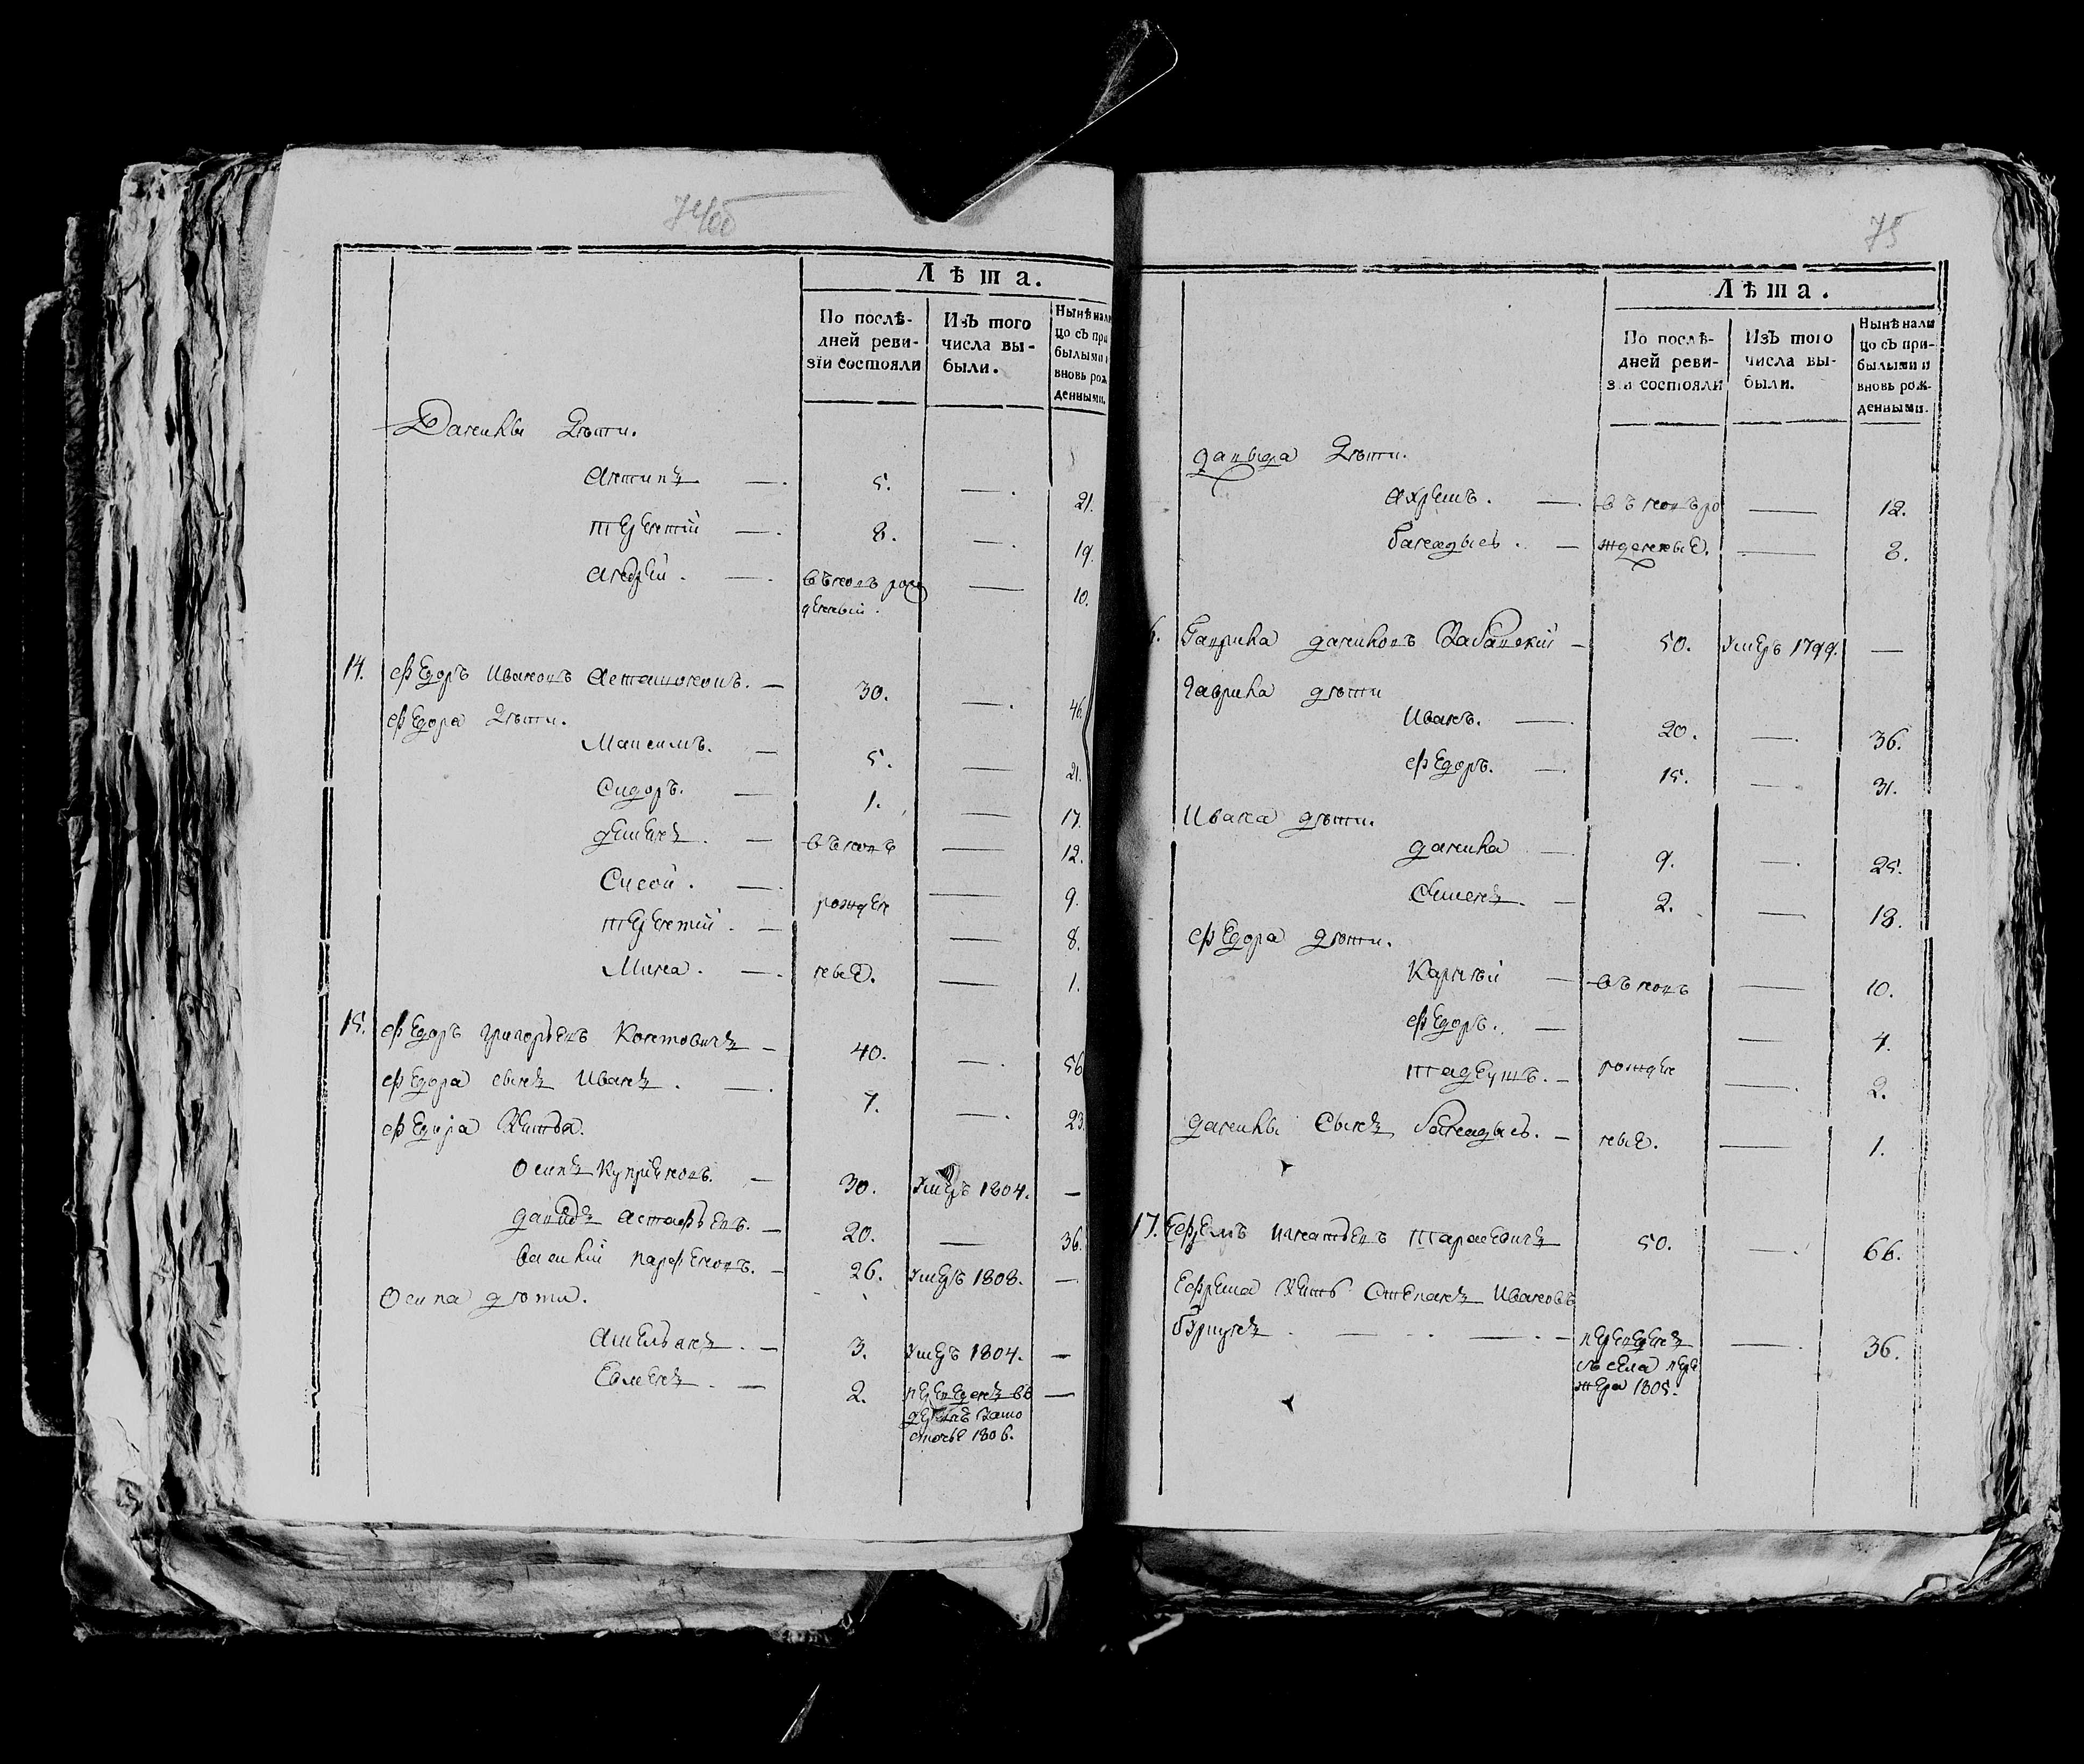 74об
Лѣта.
По послѣ-
дней реви-
зіи состояли
Изъ того
числа вы-
были.
Нынѣ нали
цо съ при
былыми и
вновь рож
денными.
Данилы дѣти.
Антипъ — 5. — 21.
Терентій — 8. — 19.
Андрей — въновь рож — 10.
денный.
14. Федоръ Ивановъ — 30. — 46.
Федора дѣти.
Максимъ. — 5. — 21.
Сидоръ. — 1. — 17.
Семенъ. — въновь — 12.
Сысой. — рожден — 9.
Терентій. — 8.
Мина. — ные. — 1.
15. Федоръ Григорьевъ — 40. — 56
Федора сынъ Иванъ. — 7. — 23.
Федора
Осипъ Купріяновъ. — 30. умеръ 1804. —
Давыдъ Астафьевъ. — 20. — 36.
Василій Парфеновъ. — 26. умеръ 1808. —
Осипа дѣти.
Емельянъ. — 3. умеръ 1804. —
Семенъ. — 2. переведенъ въ —
1806.
75
Лѣта.
По послѣ-
дней реви-
зіи состояли
Изъ того
числа вы-
были.
Нынѣ нали
цо съ при-
былыми и
вновь рож-
денными.
Давыда дѣти.
Ахремъ. — въновь ро — 12.
— жденные. — 8.
Гаврила Даниловъ — 50. умеръ 1799. —
Гаврила дѣти
Иванъ. — 20. — 36.
Федоръ. — 15. — 31.
Ивана дѣти.
Данила — 9. — 25.
Семенъ. — 2. — 18.
Федора дѣти.
Карпѣй — въновь — 10.
Федоръ. — 4.
Тадеушъ. — рожден — 2.
Данилы сынъ — ные. — 1.
17. Ефремъ Игнатьевъ Тарасевичъ 50. — 66.
Ефрема Степанъ Ивановъ
— переведенъ — 36.
съ села
1805.